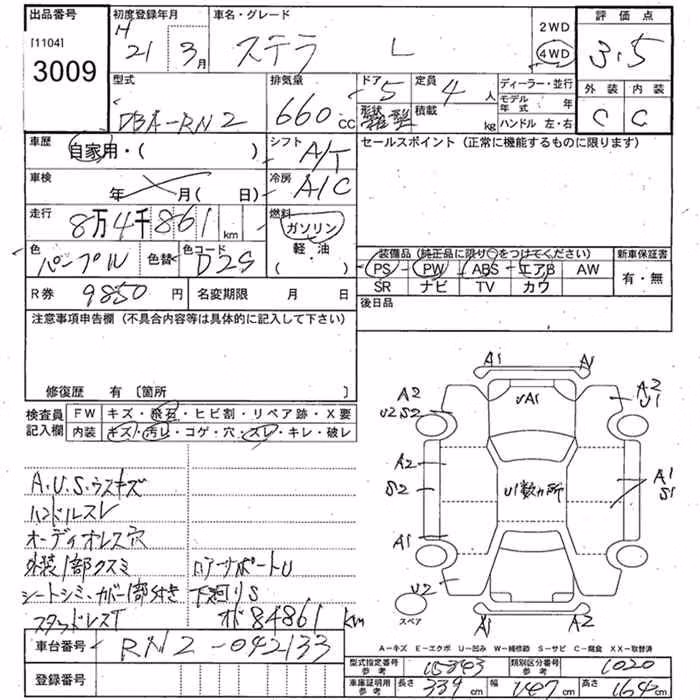 出品番号 初度登録年月 車名・グレード 評価点
[1104] 3009
H 21 3月 ステラ L 2WD 4WD 3.5
型式 排気量 ドア 5 定員 4人 ディーラー・並行 外装 内装
DBA-RN2 660cc 形状 積載 kg モデル年式 年 C C
ハンドル 左・右
車歴 自家用・( ) シフト A/T セールスポイント (正常に機能するものに限ります)
車検 年 月( 日) 冷房 A/C
走行 8万4千861km 燃料 ガソリン・軽・油 ( )
色 パープル 色替 色コード D2S
装備品 (純正品に限り○をつけてください) 新車保証書
PS PW ABS エアB AW 有・無
SR ナビ TV カワ
R券 9850円 名変期限 月 日 後日品
注意事項申告欄 (不具合内容等は具体的に記入して下さい)
修復歴 有 〔箇所 〕
検査員記入欄 FW キズ・飛石・ヒビ割・リペア跡・X要
内装 キズ・汚レ・コゲ・穴・スレ・キレ・破レ
A.U.S.ウスキズ
ハンドルスレ
オーディオレス穴
外装1部クスミ ロアーサポートU
シートシミ、カバー1部分付き 下廻りS
スタッドレスT オド84861km
A1 A1
A2 U2 S2 UA1 A2 U1
A2
S2 U1数ヵ所 A1 S1
A1
U2
スペア A1 A2
A-キズ E-エクボ U-凹み W-補修跡 S-サビ C-腐食 XX-取替済
車台番号 RN2-042133
登録番号
型式指定番号 参考 15343 類別区分番号 参考 1020
車庫証明用 参考 長さ 339cm 幅 147cm 高さ 164cm